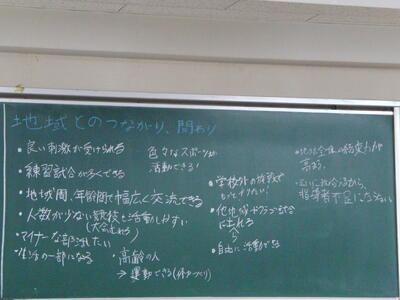 地域とのつながり、関わり
・良い刺激が受けられる
・練習試合が多くできる
・地域間、年齢間で幅広く交流できる
・人数が少ない競技も活動しやすい
(大会も出れる)
・マイナーな部活
・生活の一部になる
色々なスポーツが
活動できる!
・高齢の人
→運動できる(体力づくり)
・学校外の施設で
・他地域やクラブの試合
に出れる
・自由に活動できる
・地域全体の
高まる。
指導者不足にならない